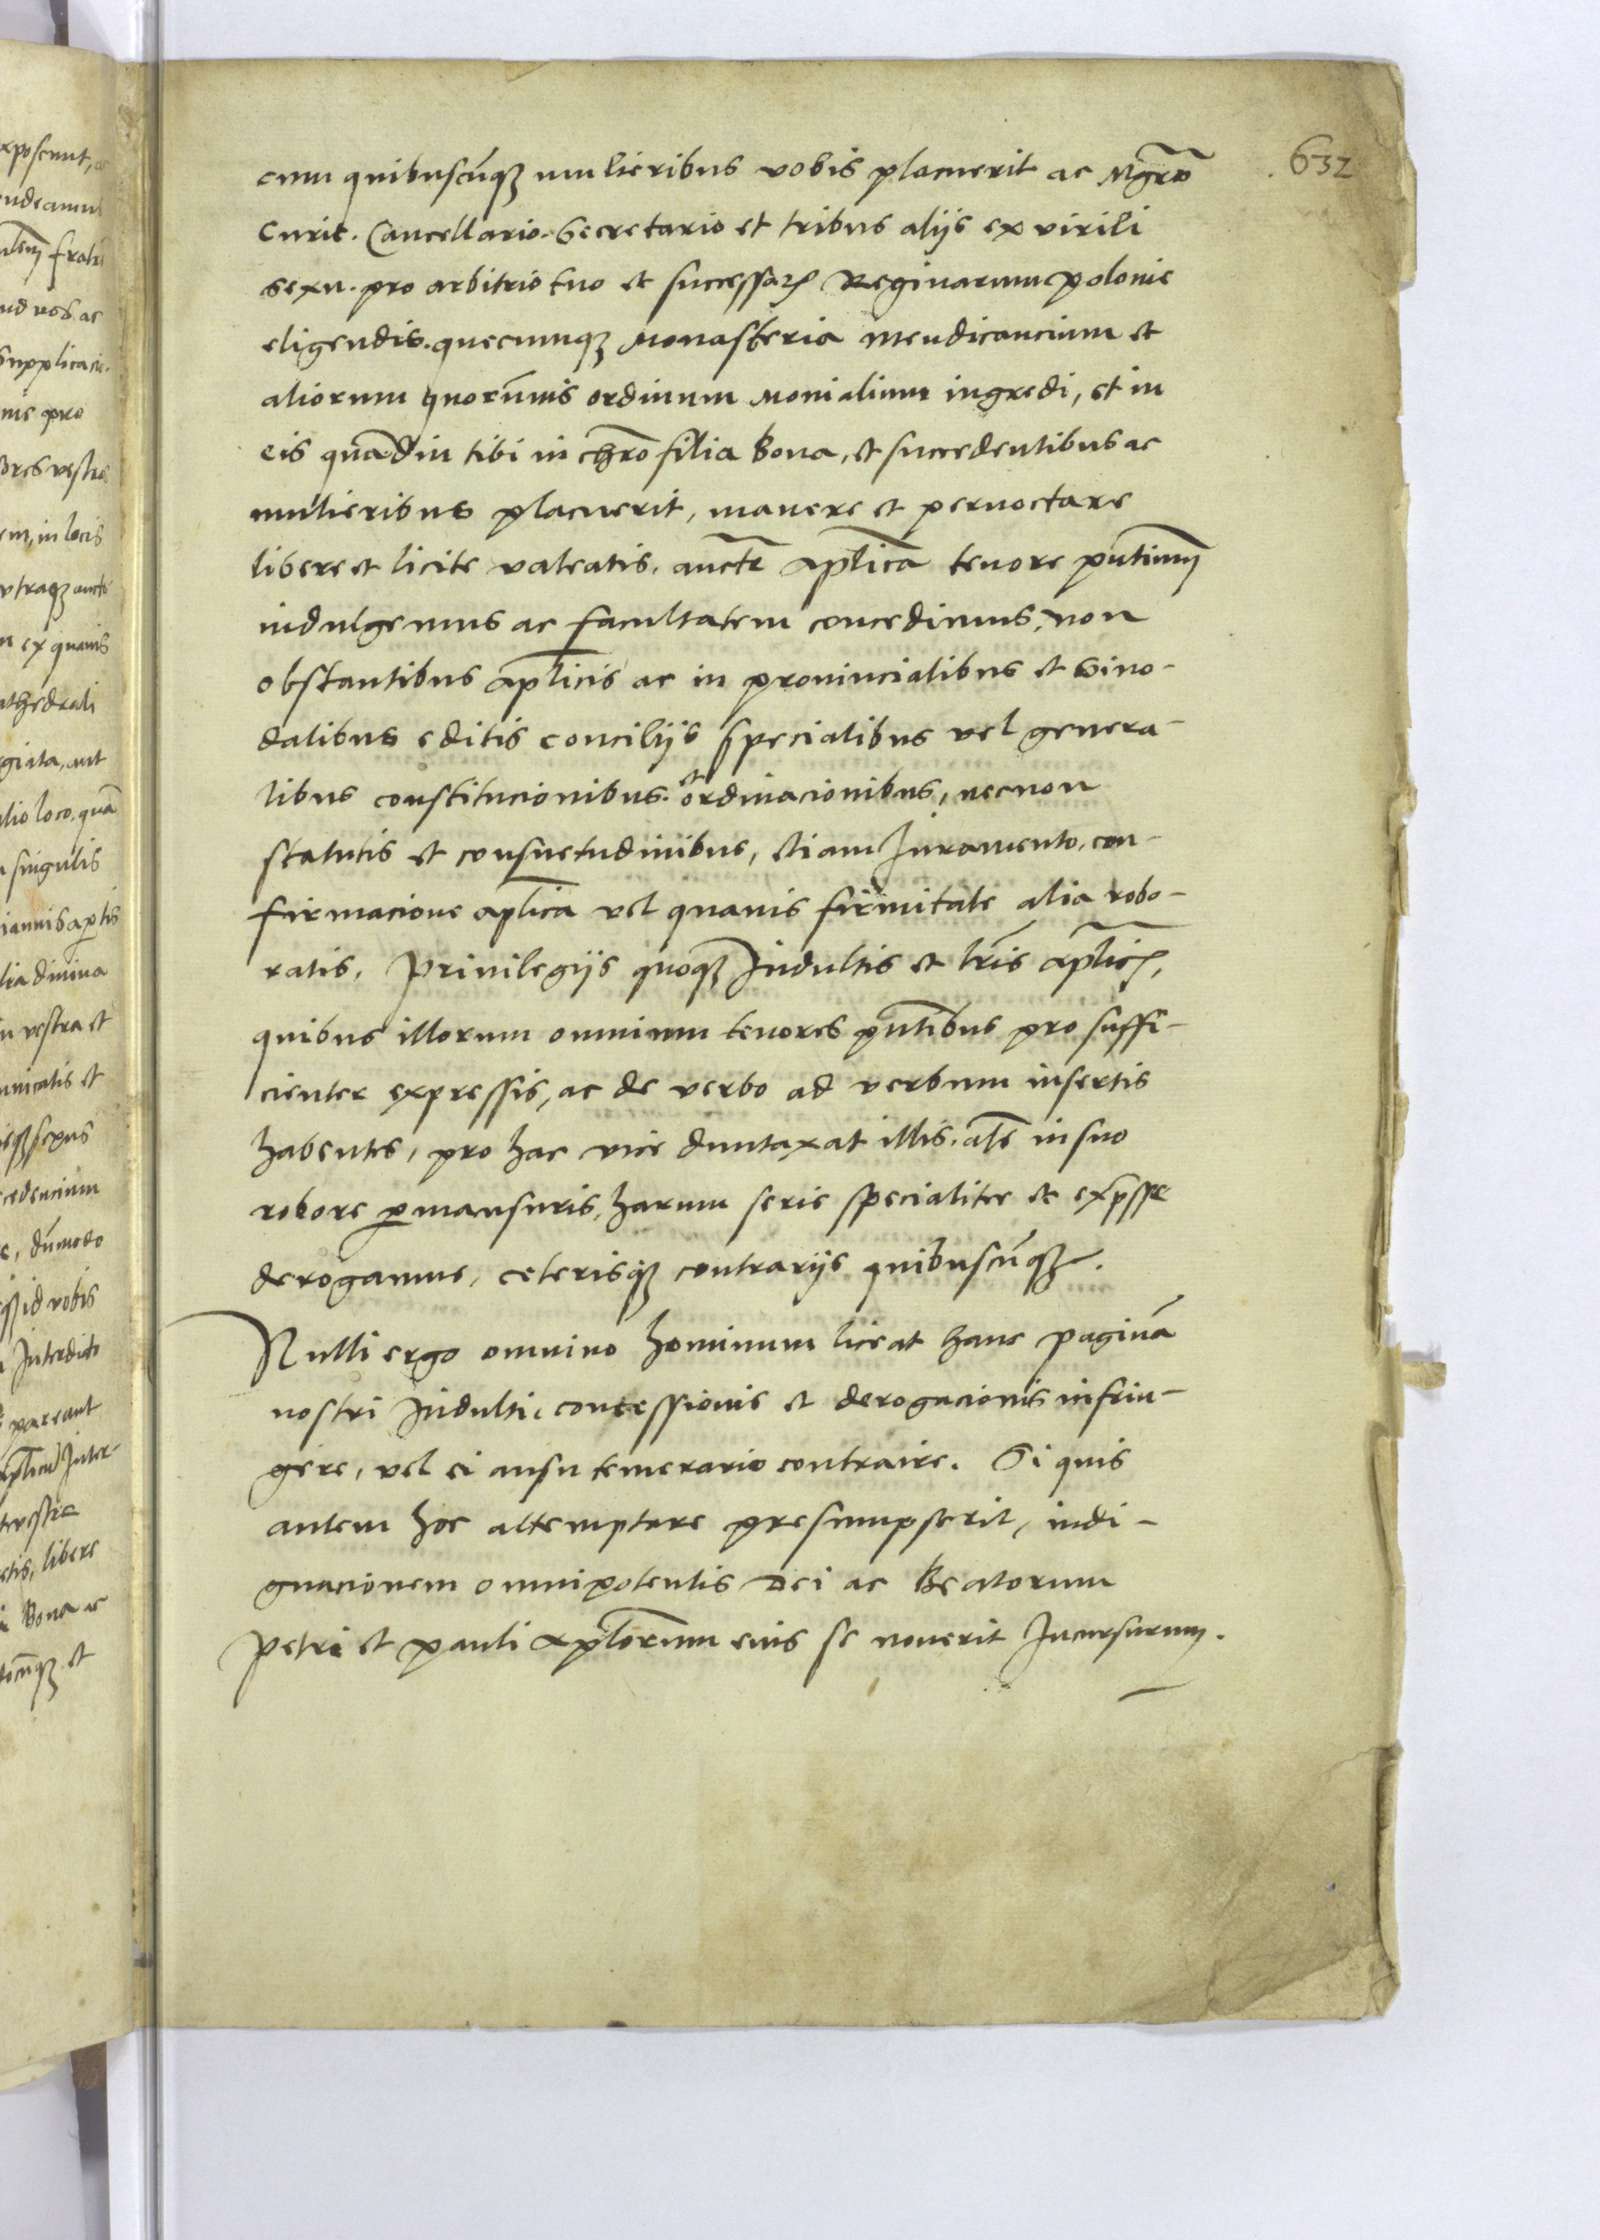 632
cum quibuscūqꝫ mulieribus vobis placuerit ac Mgr̄o
Curie. Cancellario. Secretario et tribus aliis ex virili
sexu. pro arbitrio tuo et successorꝝ Reginarum polonie
eligendis. quecumqꝫ Monasteria Mendicancium et
aliorum quorūuis ordinum Monialium ingredi, et in
eis quādiu tibi in chr̄o filia Bona, et succedentibus ac
mulieribus placuerit, manere et pernoctare
libere et licite valeatis. aucte ap̄lica tenore pn̄tium
indulgemus ac facultatem concedimus, non
obstantibus ap̄licis ac in prouincialibus et Sino-
dalibus editis conciliis specialibus vel genera-
libus constitucionibus. et ordinacionibus, necnon
statutis et consuetudinibus, etiam Juramento, con-
firmacione ap̄lica vel quauis firmitate alia robo-
ratis. Priuilegiis quoqꝫ Indultis et lr̄is ap̄licꝭ,
quibus illorum omnium tenores pn̄tibus pro suffi-
cienter expressis, ac de verbo ad verbum insertis
habentes, pro hac vice duntaxat illis. als̄ in suo
robore ꝑmansuris, harum serie specialiter et exp̄sse
derogamus, ceterisqꝫ contrariis quibuscūqꝫ.
Nulli ergo omnino hominum liceat hanc paginā
nostri Indulti, concessionis et derogacionis infrin-
gere, vel ei ausu temerario contraire. Si quis
autem hoc attemptare presumpserit, indi-
gnacionem omnipotentis Dei ac Beatorum
Petri et Pauli ap̄lorum eius se nouerit Incursurum.